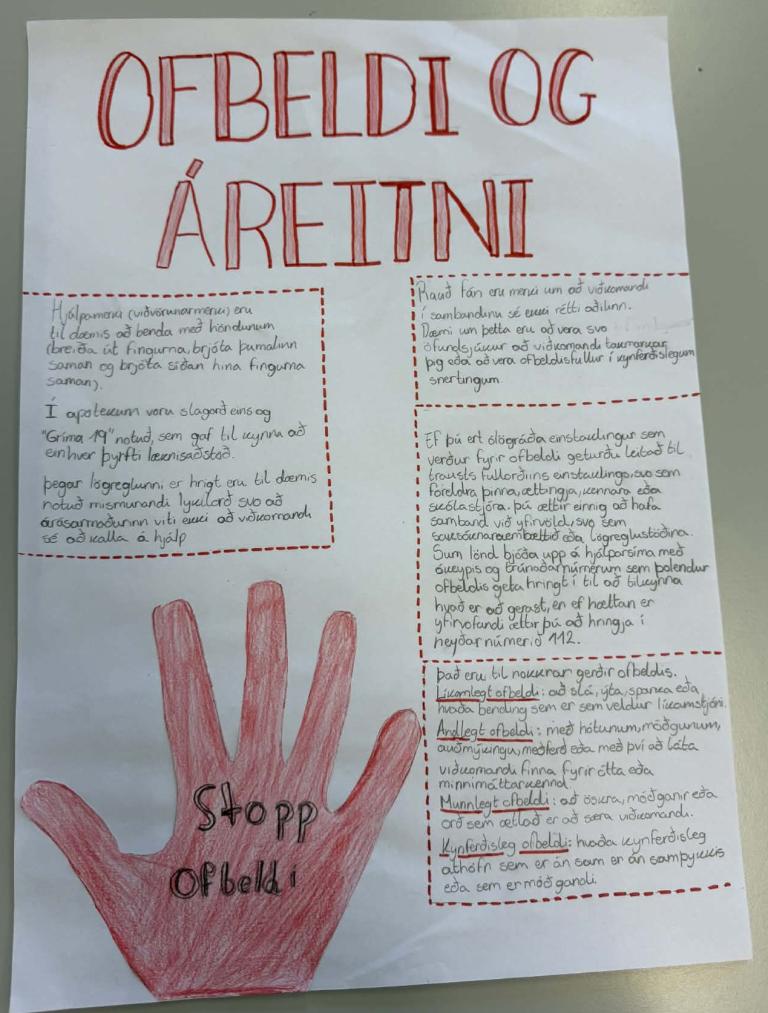 OFBELDI OG
ÁREITNI
Hjálpamerki (viðvörunarmerki) eru
til dæmis að benda með höndunum
(breiða út fingurna, brjóta þumalinn
saman og brjóta síðan hina fingurna
saman).
Í apotekum voru slagorð eins og
"Gríma 19" notuð, sem gaf til kynna að
einhver þyrfti læknisaðstoð.
þegar lögreglunni er hrigt eru til dæmis
notuð mismunandi lykilorð svo að
árásarmaðurinn viti ekki að viðkomandi
sé að kalla á hjálp
Rauð fán eru merki um að viðkomandi
í sambandinu sé ekki rétti aðilinn.
Dæmi um þetta eru að vera svo
öfundsjúkur að viðkomandi takmarkar
þig eða að vera ofbeldisfullur í kynferðislegum
snertingum.
Ef þú ert ólögráða einstaklingur sem
verður fyrir ofbeldi geturðu leitað til
trausts fullorðins einstaklings, svo sem
foreldra þinna, ættingja, kennara eða
skólastjóra. þú ættir einnig að hafa
samband við yfirvöld, svo sem
eða lögreglustöðina.
Sum lönd bjóða upp á hjálparsíma með
ókeypis og trúnaðarnúmerum sem þolendur
ofbeldis geta hringt í til að tilkynna
hvað er að gerast, en ef hættan er
yfirvofandi ættir þú að hringja í
neyðarnúmerið 112.
það eru til nokkrar gerðir ofbeldis.
Líkamlegt ofbeldi: að slá, ýta, sparka eða
hvaða bending sem er sem veldur líkamstjóni.
Andlegt ofbeldi: með hótunum, móðgunum,
auðmýkingu, meðferð eða með því að láta
viðkomandi finna fyrir ótta eða
minnimáttarkennd.
Munnlegt ofbeldi: að öskra, móðganir eða
orð sem ætlað er að særa viðkomandi.
Kynferðisleg ofbeldi: hvaða kynferðisleg
athöfn sem er án sam er án samþykkis
eða sem er móðgandi.
Stopp
Ofbeldi